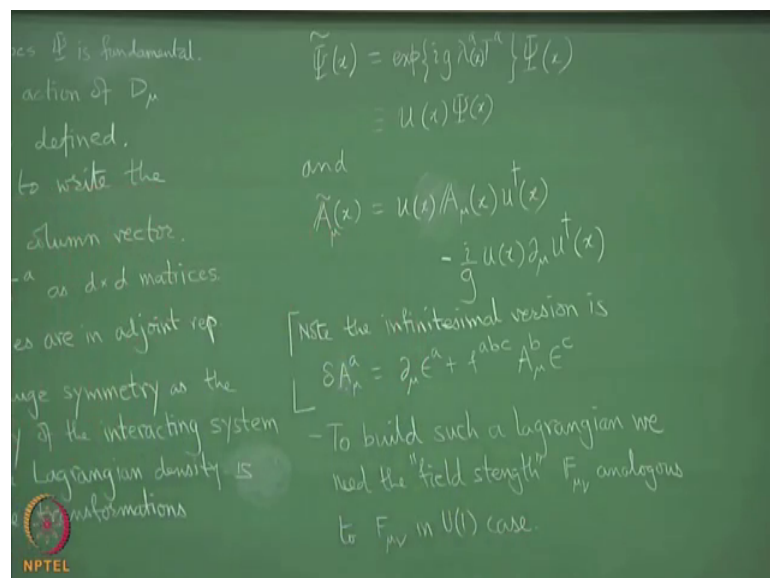 es Ψ is fundamental.
action of D_μ
defined.
to write the
column vector.
as d×d matrices.
es are in adjoint rep
uge symmetry as the
y of the interacting system
Lagrangian density is
transformations
Ψ̃(x) = exp{i g λ^a(x) T^a} Ψ(x)
≡ U(x) Ψ(x)
and
Ã_μ(x) = U(x) A_μ(x) U†(x)
- i/g U(x) ∂_μ U†(x)
[Note the infinitesimal version is
δA^a_μ = ∂_μ ε^a + f^{abc} A^b_μ ε^c
- To build such a lagrangian we
need the "field stength" F_μν analogous
to F_μν in U(1) case.
NPTEL